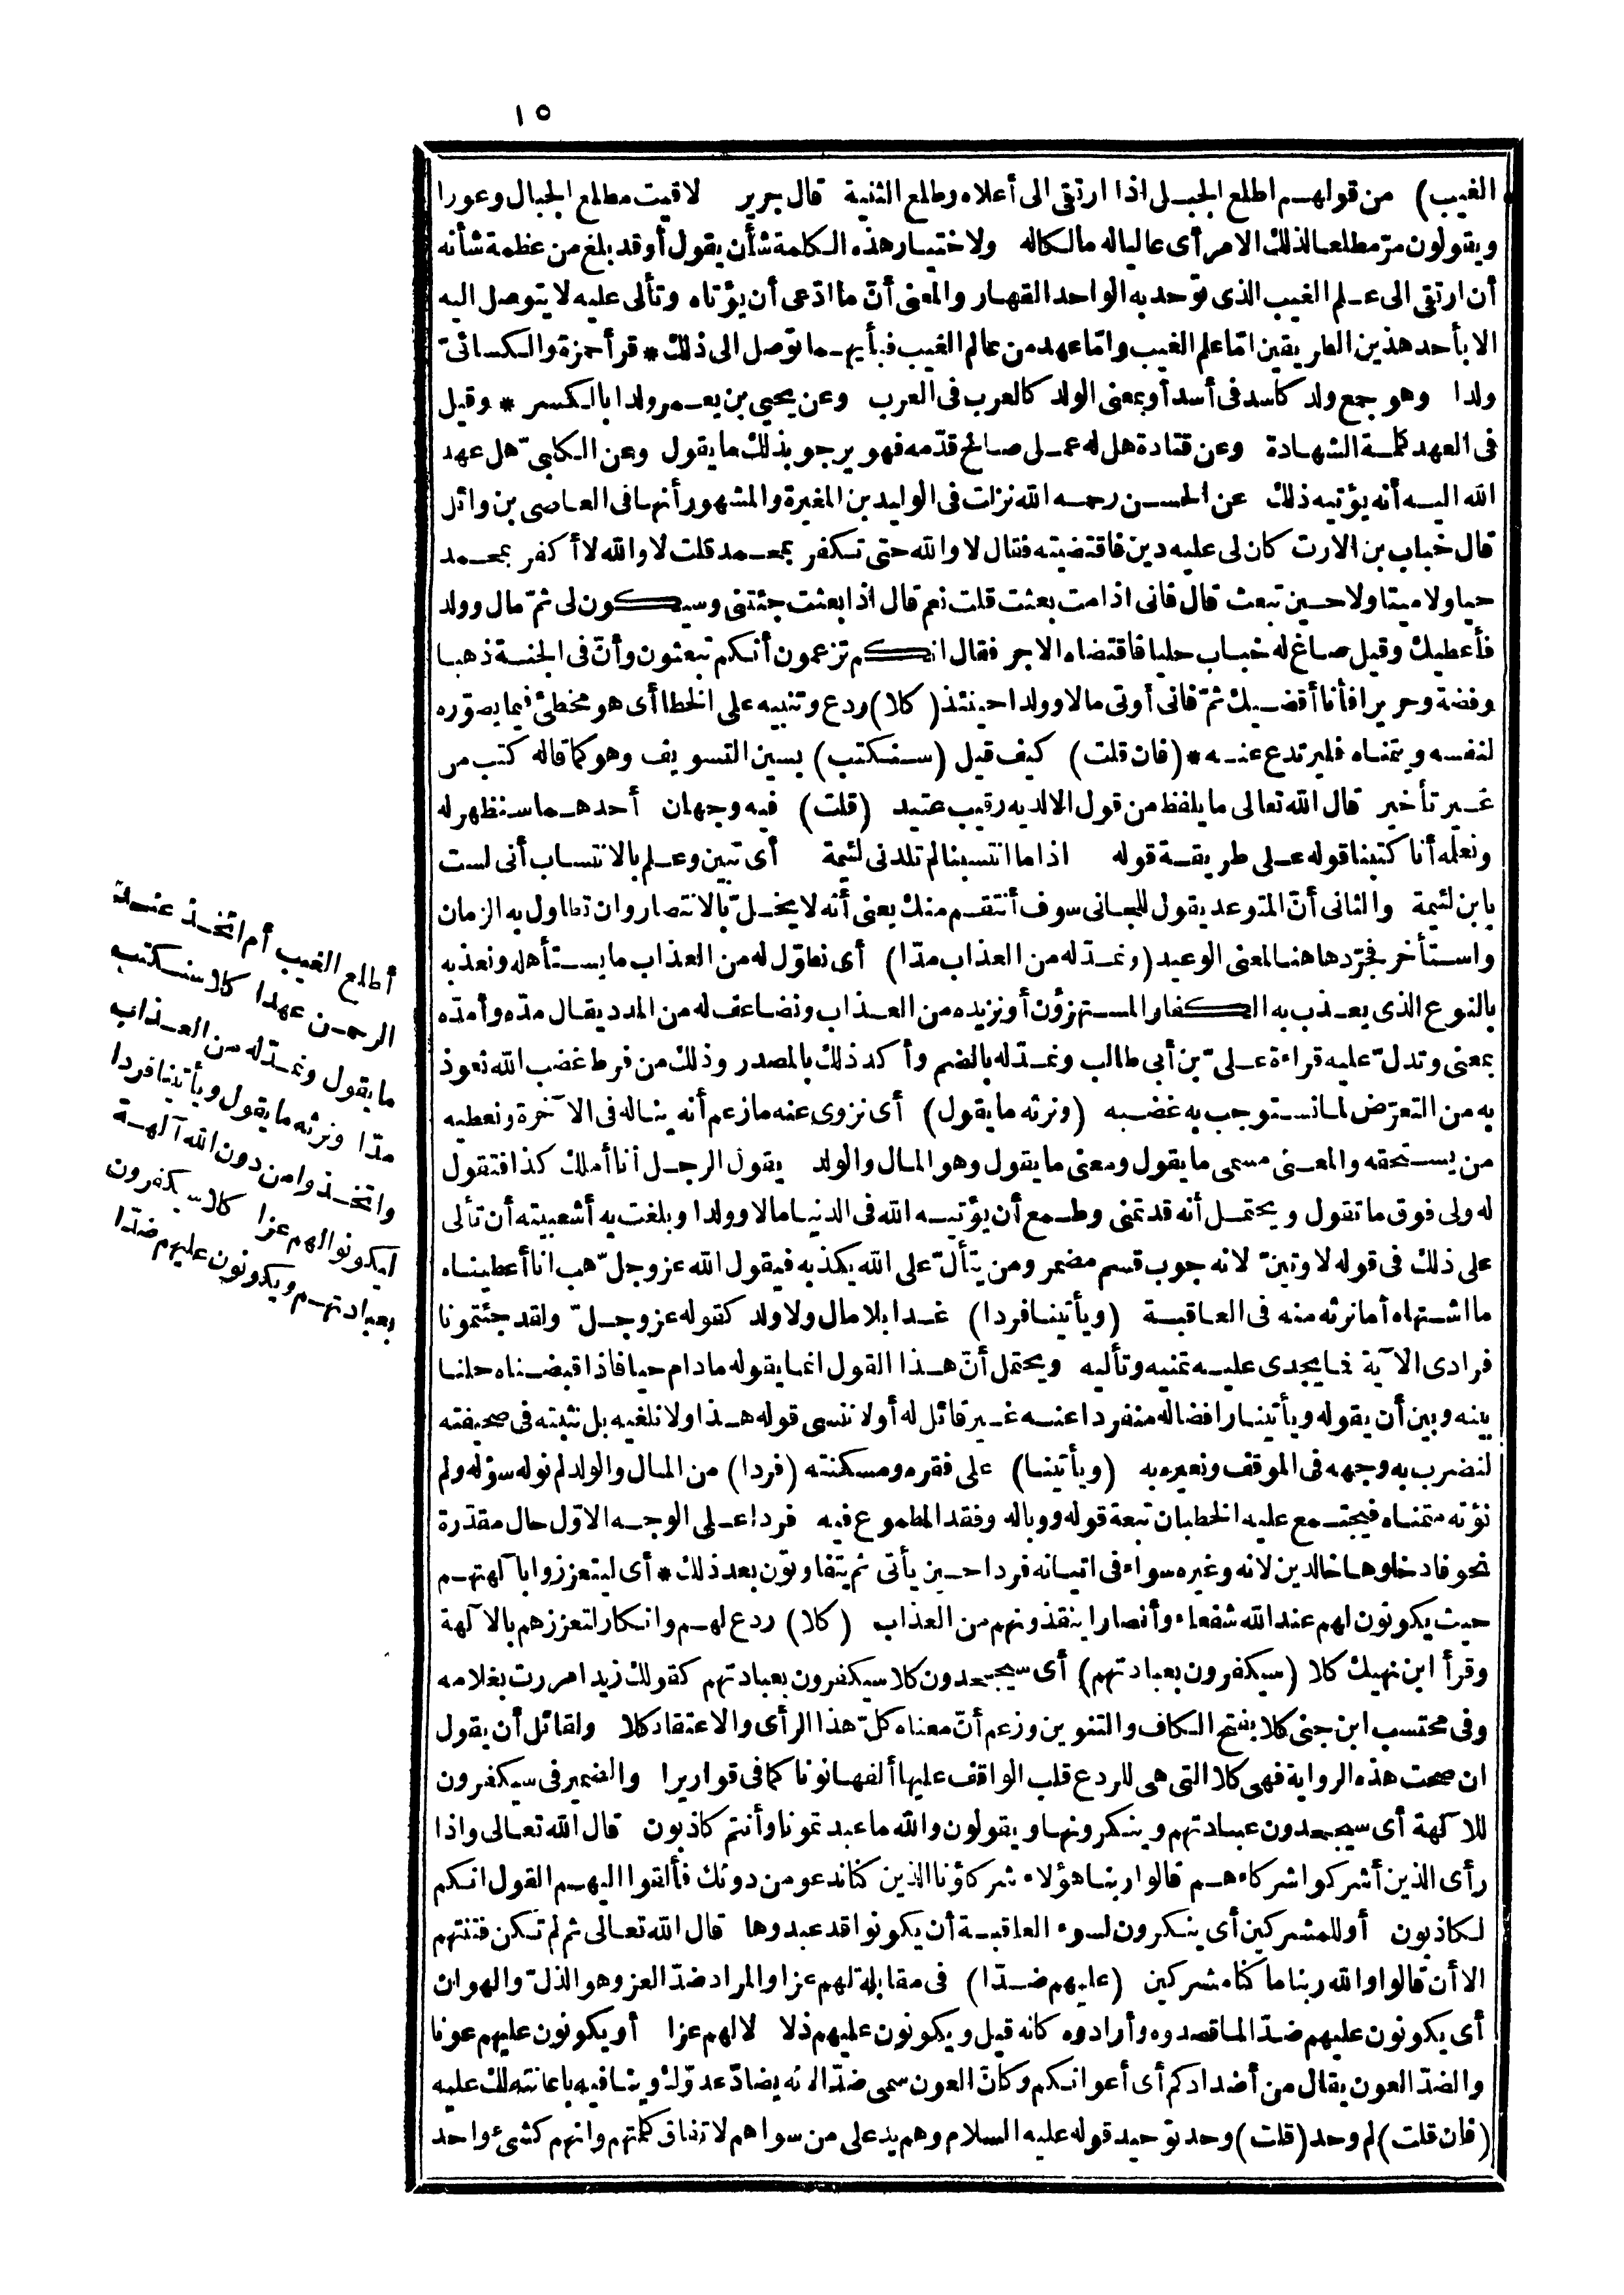 ١٥
الغيب) من قولهم اطلع الجبل اذا ارتقى الى أعلاه وطلع الثنية قال جرير لاقيت مطلع الجبال وعورا
ويقولون مرّ مطلعا لذلك الامر أى عاليا له مالكاله ولاختيار هذه الكلمة شأن يقول أوقد بلغ من عظمة شأنه
أن ارتقى الى علم الغيب الذى توحد به الواحد القهار والمعنى أنّ ما ادّعى أن يؤتاه وتألى عليه لا يتوصل اليه
الا بأحد هذين الطريقين امّا علم الغيب وامّا عهد من عالم الغيب فبأيهما توصل الى ذلك * قرأ حمزة والكسائىّ
ولدا وهو جمع ولد كاسد فى أسد أو بمعنى الولد كالعرب فى العرب وعن يحيى بن يعمر ولدا بالكسر * وقيل
فى العهد كلمة الشهادة وعن قتادة هل له عمل صالح قدّمه فهو يرجو بذلك ما يقول وعن الكلبىّ هل عهد
الله اليه أنه يؤتيه ذلك عن الحسن رحمه الله نزلت فى الوليد بن المغيرة والمشهور أنها فى العاصى بن وائل
قال خباب بن الارت كان لى عليه دين فاقتضيته فقال لا والله حتى تكفر بمحمد قلت لا والله لا أكفر بمحمد
حيا ولا ميتا ولا حين تبعث قال فانى اذا مت بعثت قلت نعم قال اذا بعثت جئتنى وسيكون لى ثمّ مال وولد
فأعطيك وقيل صاغ له خباب حليا فاقتضاه الاجر فقال انكم تزعمون أنكم تبعثون وأنّ فى الجنة ذهبا
وفضة وحريرا فأنا أقضيك ثمّ فانى أوتى مالا وولدا حينئذ (كلا) ردع وتنبيه على الخطا أى هو مخطئ فيما يصوّره
لنفسه ويتمناه فليرتدع عنه * (فان قلت) كيف قيل (سنكتب) بسين التسويف وهو كما قاله كتب من
غير تأخير قال الله تعالى ما يلفظ من قول الا لديه رقيب عتيد (قلت) فيه وجهان أحدهما سنظهر له
ونعلمه أنا كتبنا قوله على طريقة قوله اذا ما انتسبنا لم تلدنى لئيمة أى تبين وعلم بالانتساب أنى لست
بابن لئيمة والثانى أنّ المتوعد يقول للجانى سوف أنتقم منك يعنى أنه لا يخلّ بالانتصار وان تطاول به الزمان
واستأخر فجرّدها هنا لمعنى الوعيد (ونمدّ له من العذاب مدّا) أى نطوّل له من العذاب ما يستأهله ونعذبه
بالنوع الذى يعذب به الكفار المستهزؤن أو نزيده من العذاب ونضاعف له من المدد يقال مدّه وأمدّه
بمعنى وتدلّ عليه قراءة علىّ بن أبى طالب ونمدّ له بالضم وأكد ذلك بالمصدر وذلك من فرط غضب الله نعوذ
به من التعرّض لما نستوجب به غضبه (ونرثه ما يقول) أى نزوى عنه ما زعم أنه يناله فى الآخرة ونعطيه
من يستحقه والمعنى مسمى ما يقول ومعنى ما يقول وهو المال والولد يقول الرجل أنا أملك كذا فتقول
له ولى فوق ما تقول ويحتمل أنه قد تمنى وطمع أن يؤتيه الله فى الدنيا مالا وولدا وبلغت به أشعبيته أن تألى
على ذلك فى قوله لاوتينّ لانه جوب قسم مضمر ومن يتألّ على الله يكذبه فيقول الله عز وجلّ هب انا أعطيناه
ما اشتهاه أما نرثه منه فى العاقبة (ويأتينا فردا) غدا بلا مال ولا ولد كقوله عز وجلّ ولقد جئتمونا
فرادى الآية فما يجدى عليه تمنيه وتأليه ويحتمل أنّ هذا القول انما يقوله مادام حيا فاذا قبضناه حلنا
بينه وبين أن يقوله ويأتينا رافضا له منفردا عنه غير قائل له أو لا ننسى قوله هذا ولا نلغيه بل نثبته فى صحيفته
لنضرب به وجهه فى الموقف ونعيره به (ويأتينا) على فقره ومسكنته (فردا) من المال والولد لم نوله سؤله ولم
نؤته متمناه فيجتمع عليه الخطبان تبعة قوله ووباله وفقد المطموع فيه فردا على الوجه الاوّل حال مقدّرة
نحو فادخلوها خالدين لانه وغيره سواء فى اتيانه فردا حين يأتى ثم يتفاوتون بعد ذلك * أى ليتعززوا بآلهتهم
حيث يكونون لهم عند الله شفعاء وأنصارا ينقذونهم من العذاب (كلا) ردع لهم وانكار لتعززهم بالآلهة
وقرأ ابن نهيك كلا (سيكفرون بعبادتهم) أى سيجحدون كلا سيكفرون بعبادتهم كقولك زيدا مررت بغلامه
وفى محتسب ابن جنى كلا بفتح الكاف والتنوين وزعم أنّ معناه كلّ هذا الرأى والاعتقاد كلا ولقائل أن يقول
ان صحت هذه الرواية فهى كلا التى هى للردع قلب الواقف عليها ألفها نونا كما فى قواريرا والضمير فى سيكفرون
للآلهة أى سيجحدون عبادتهم وينكرونها ويقولون والله ما عبدتمونا وأنتم كاذبون قال الله تعالى واذا
رأى الذين أشركوا شركاءهم قالوا ربنا هؤلاء شركاؤنا الذين كنا ندعو من دونك فألقوا اليهم القول انكم
لكاذبون أو للمشركين أى ينكرون لسوء العاقبة أن يكونوا قد عبدوها قال الله تعالى ثم لم تكن فتنتهم
الا أن قالوا والله ربنا ما كنا مشركين (عليهم ضدّا) فى مقابلة لهم عزا والمراد ضدّ العز وهو الذلّ والهوان
أى يكونون عليهم ضدّا لما قصدوه وأرادوه كانه قيل ويكونون عليهم ذلا لا لهم عزا أو يكونون عليهم عونا
والضدّ العون يقال من أضدادكم أى أعوانكم وكانّ العون سمى ضدّا لانه يضادّ عدوّك وينافيه باعانته لك عليه
(فان قلت) لم وحد (قلت) وحد توحيد قوله عليه السلام وهم يد على من سواهم لاتفاق كلمتهم وانهم كشئ واحد
أطلع الغيب أم اتخذ عند
الرحمن عهدا كلا سنكتب
ما يقول ونمدّ له من العذاب
مدّا ونرثه ما يقول ويأتينا فردا
واتخذوا من دون الله آلهة
ليكونوا لهم عزا كلا سيكفرون
بعبادتهم ويكونون عليهم ضدّا